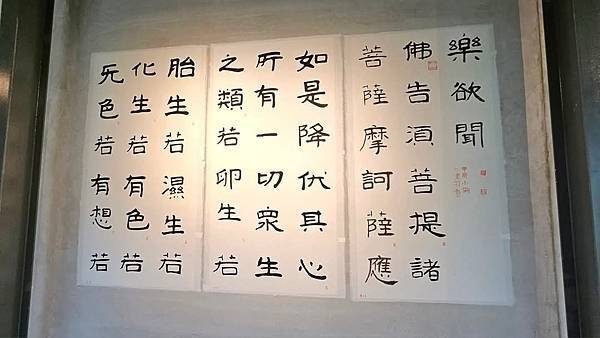 樂欲聞
佛告湏菩提諸
菩薩摩訶薩應
如是降伏其心
所有一切衆生
之類若卵生若
胎生若濕生若
化生若有色若
无色若有想若